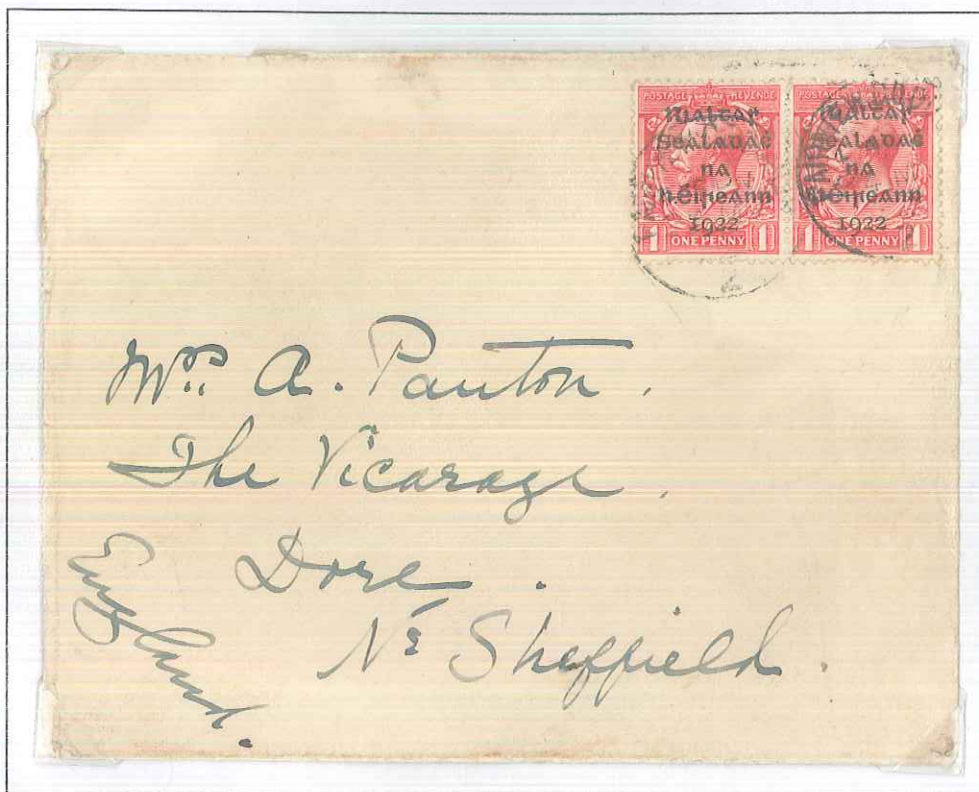 POSTAGE REVENUE
Rialtas
Sealadaċ
na
hÉireann
1922
1 ONE PENNY 1
POSTAGE REVENUE
Rialtas
Sealadaċ
na
hÉireann
1922
1 ONE PENNY 1
Mrs. A. Panton.
The Vicarage.
Dore.
Nr Sheffield.
England.